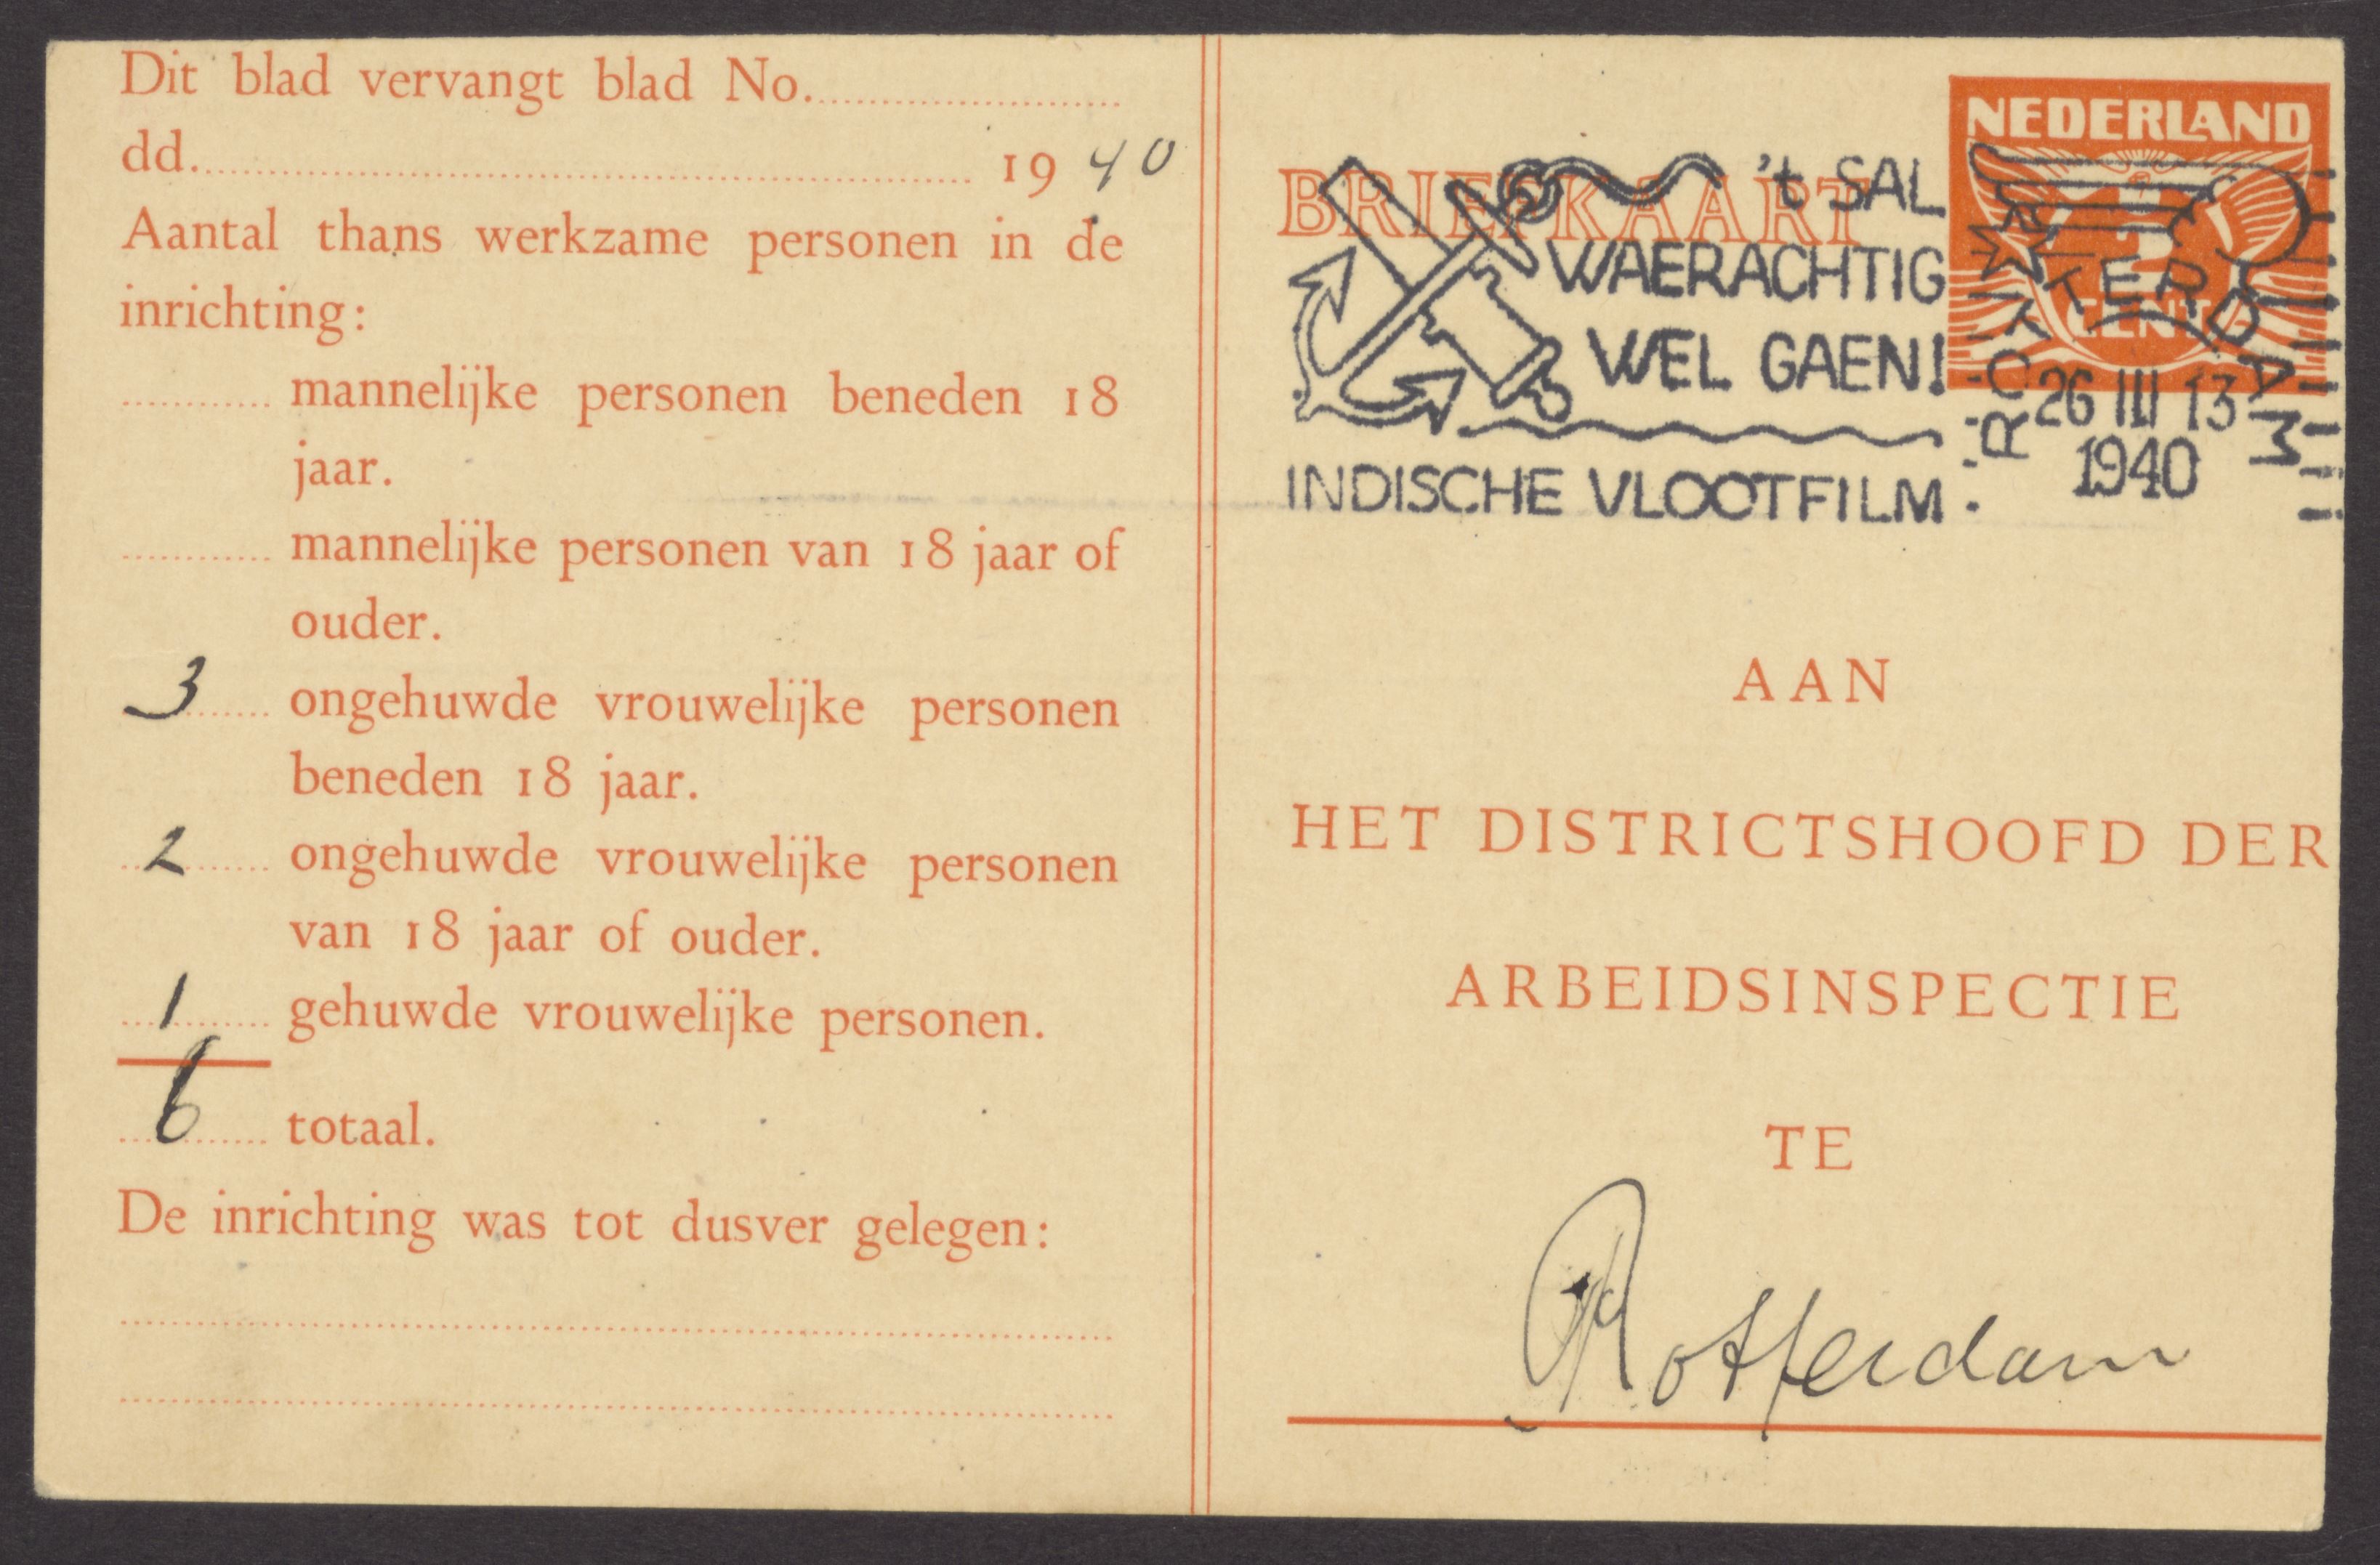 Dit blad vervangt blad No.
dd. 1940
Aantal thans werkzame personen in de
inrichting:
mannelijke personen beneden 18
jaar.
mannelijke personen van 18 jaar of
ouder.
3 ongehuwde vrouwelijke personen
beneden 18 jaar.
2 ongehuwde vrouwelijke personen
van 18 jaar of ouder.
1 gehuwde vrouwelijke personen.
6 totaal.
De inrichting was tot dusver gelegen:
BRIEFKAART
't SAL
WAERACHTIG
WEL GAEN!
INDISCHE VLOOTFILM.
NEDERLAND
CENT
ROTTERDAM
26 III 13
1940
AAN
HET DISTRICTSHOOFD DER
ARBEIDSINSPECTIE
TE
Rotterdam